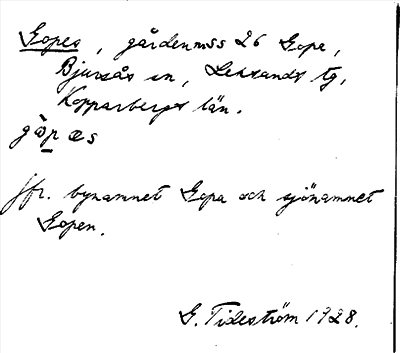 Gopes, gårdennss 26 Gopa,
Bjursås sn, Leksands tg,
Kopparbergs län.
gòp æs
Jfr. bynamnet Gopa och sjönamnet
Gopen.
G. Tideström 1928.